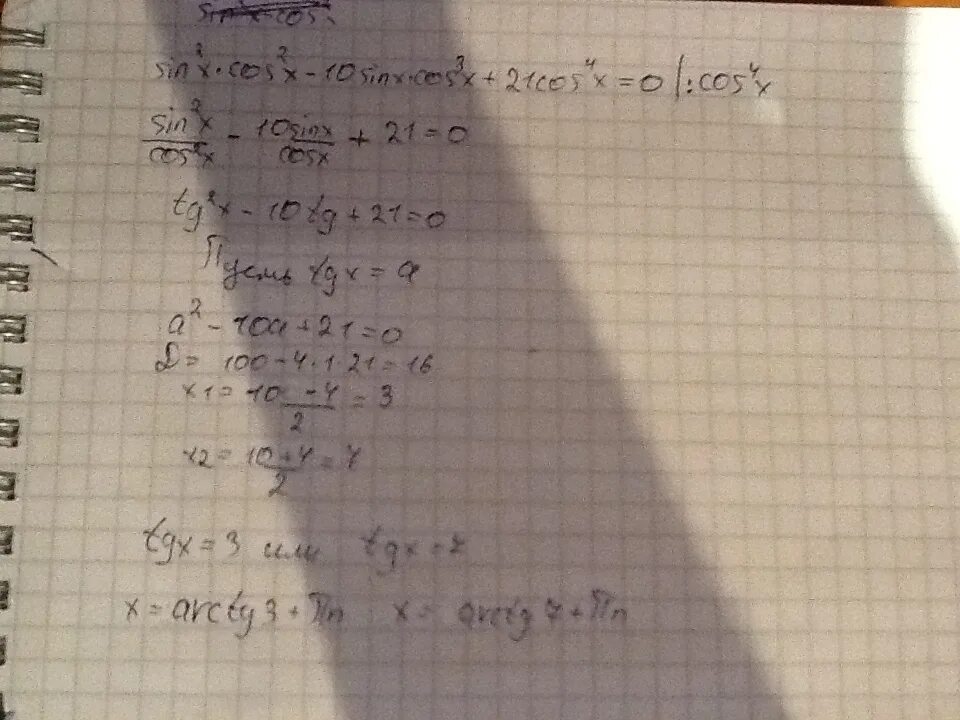 sin²x·cos²x - 10sinx·cos³x + 21cos⁴x = 0 |:cos⁴x
sin²x/cos²x - 10sinx/cosx + 21 = 0
tg²x - 10tg + 21 = 0
Пусть tgx = a
a² - 10a + 21 = 0
D = 100 - 4·1·21 = 16
x1 = 10 - 4/2 = 3
x2 = 10 + 4/2 = 7
tgx = 3 или tgx = 7
x = arctg3 + Пn x = arctg7 + Пn